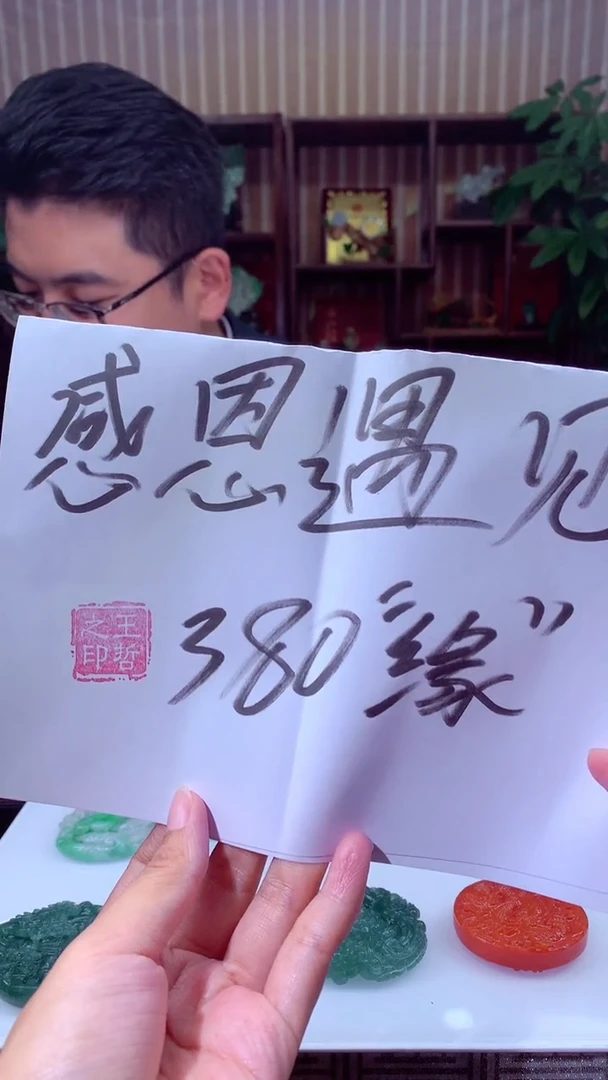 感恩遇见
380“缘”
王哲之印